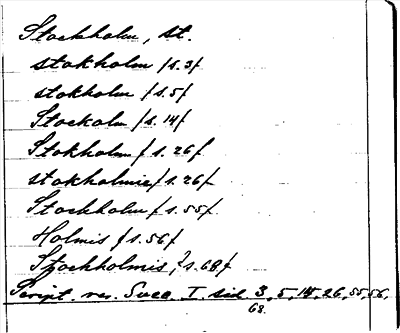 Stockholm, st.
stokholm /s.3/
stokholm /s.5/
Stocholm /s.14/
Stokholm /s.26/
stokholmie /s.26/
Stockholm /s.55/
Holmis /s.56/
Stochholmis, /s.68/
Script. rer. Svec. I sid. 3, 5, 14, 26, 55, 56,
68.